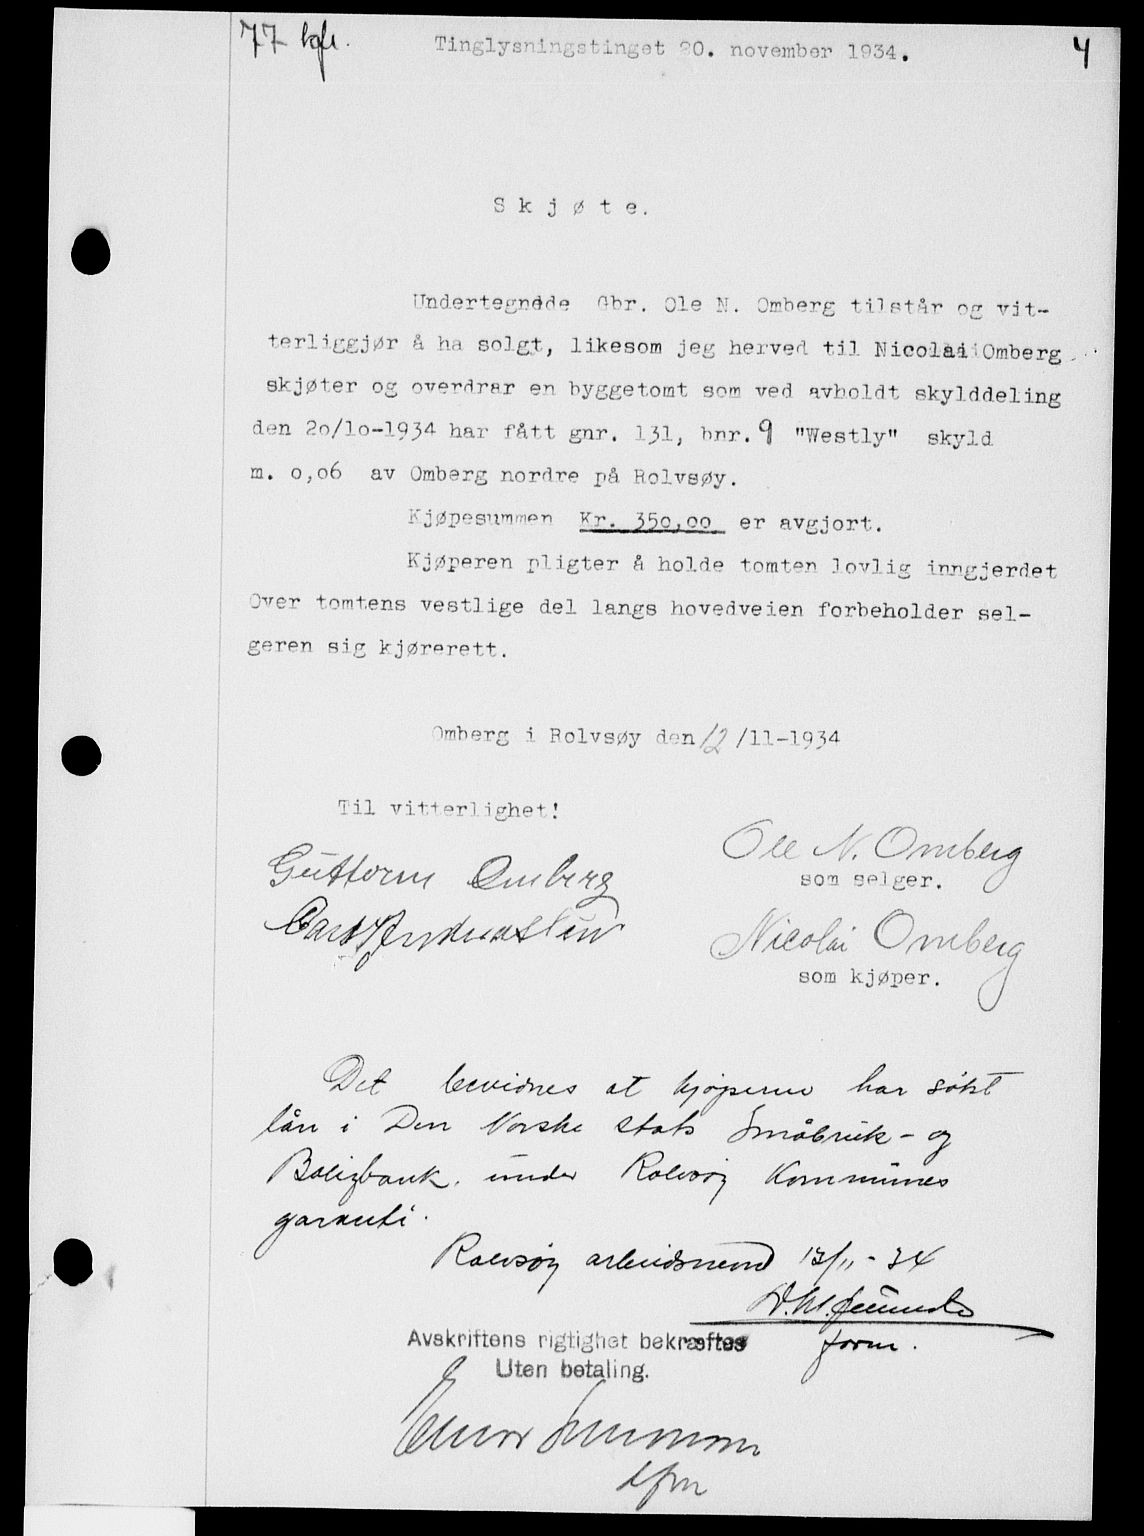 77
Tinglysningstinget 20. november 1934.
4
Skjøte.
Undertegnede Gbr. Ole N. Omberg tilstår og vit-
terliggjør å ha solgt, likesom jeg herved til Nicolai Omberg
skjøter og overdrar en byggetomt som ved avholdt skylddeling
den 20/10-1934 har fått gnr. 131, bnr. 9 "Westly" skyld
m. 0,06 av Omberg nordre på Rolvsøy.
Kjøpesummen Kr. 350,00 er avgjort.
Kjøperen pligter å holde tomten lovlig inngjerdet
Over tomtens vestlige del langs hovedveien forbeholder sel-
geren sig kjørerett.
Omberg i Rolvsøy den 12/11-1934
Til vitterlighet!
Ole N. Omberg
som selger.
Guttorm Omberg
Nicolai Omberg
som kjøper.
Det bevidnes at kjøperen har søkt
lån i Den Norske stats Småbruk- og
Boligbank. under Rolvsøy Kommunes
garanti.
Rolvsøy arbeidsnemd 13/11-34
form.
Avskriftens rigtighet bekræftes
Uten betaling.